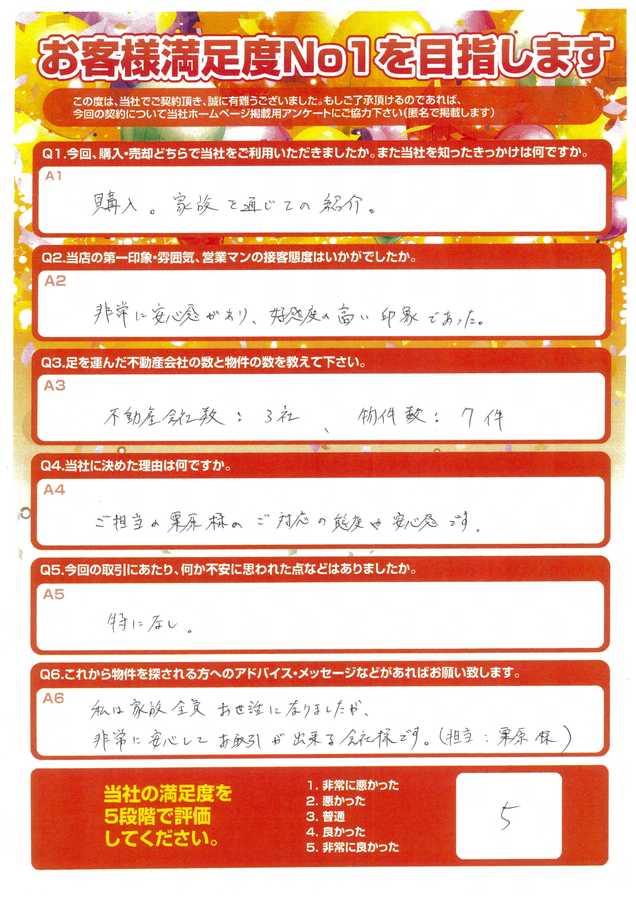 お客様満足度No1を目指します
この度は、当社でご契約頂き、誠に有難うございました。もしご了承頂けるのであれば、
今回の契約について当社ホームページ掲載用アンケートにご協力下さい(匿名で掲載します)
Q1.今回、購入・売却どちらで当社をご利用いただきましたか。また当社を知ったきっかけは何ですか。
A1
購入。家族を通じての紹介。
Q2.当店の第一印象・雰囲気、営業マンの接客態度はいかがでしたか。
A2
非常に安心感があり、好感度の高い印象であった。
Q3.足を運んだ不動産会社の数と物件の数を教えて下さい。
A3
不動産会社数：3社、物件数：7件
Q4.当社に決めた理由は何ですか。
A4
ご担当の栗原様のご対応の態度や安心感です。
Q5.今回の取引にあたり、何か不安に思われた点などはありましたか。
A5
特になし。
Q6.これから物件を探される方へのアドバイス・メッセージなどがあればお願い致します。
A6
私は家族全員お世話になりましたが、
非常に安心してお取引が出来る会社様です。(担当：栗原様)
当社の満足度を
5段階で評価
してください。
1. 非常に悪かった
2. 悪かった
3. 普通
4. 良かった
5. 非常に良かった
5